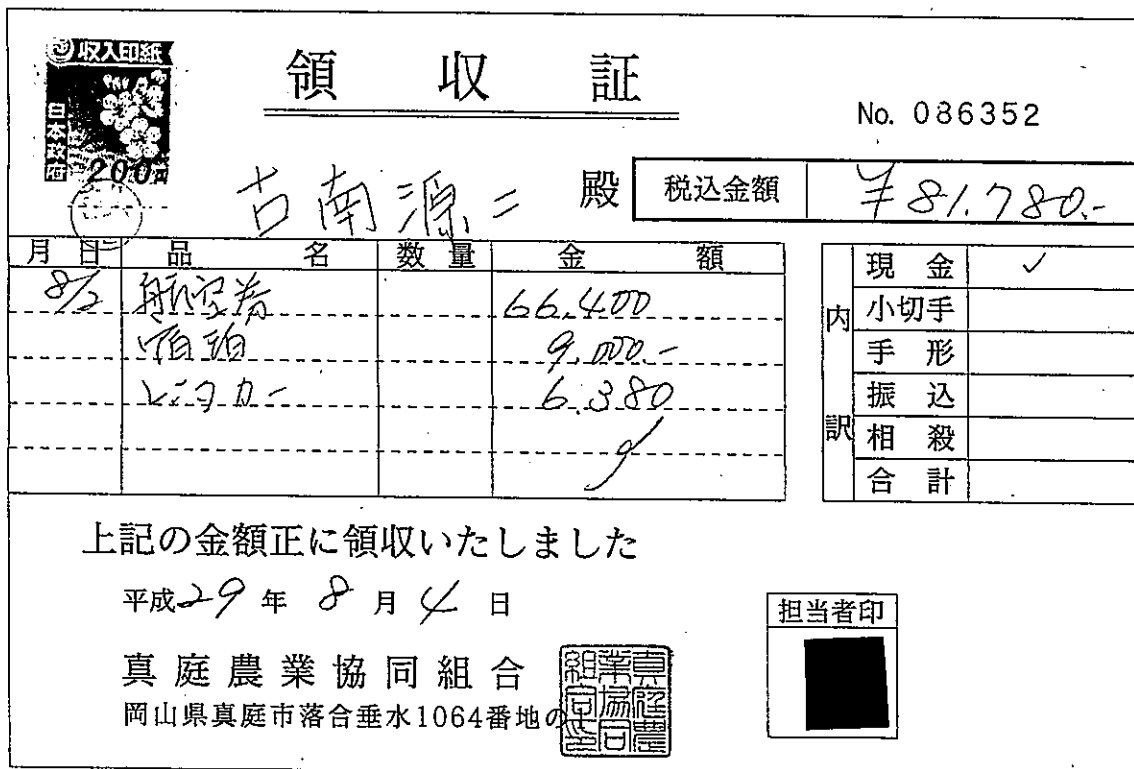 収入印紙
日本政府
200円
領収証
No. 086352
古南源二 殿
税込金額 ¥81,780.-
月日 品名 数量 金額
8/2 航空券 66,400
宿泊 9,000.-
レンタカー 6,380
内訳
現金 ✓
小切手
手形
振込
相殺
合計
上記の金額正に領収いたしました
平成29年8月4日
担当者印
真庭農業協同組合
岡山県真庭市落合垂水1064番地の
真庭農業協同組合之印